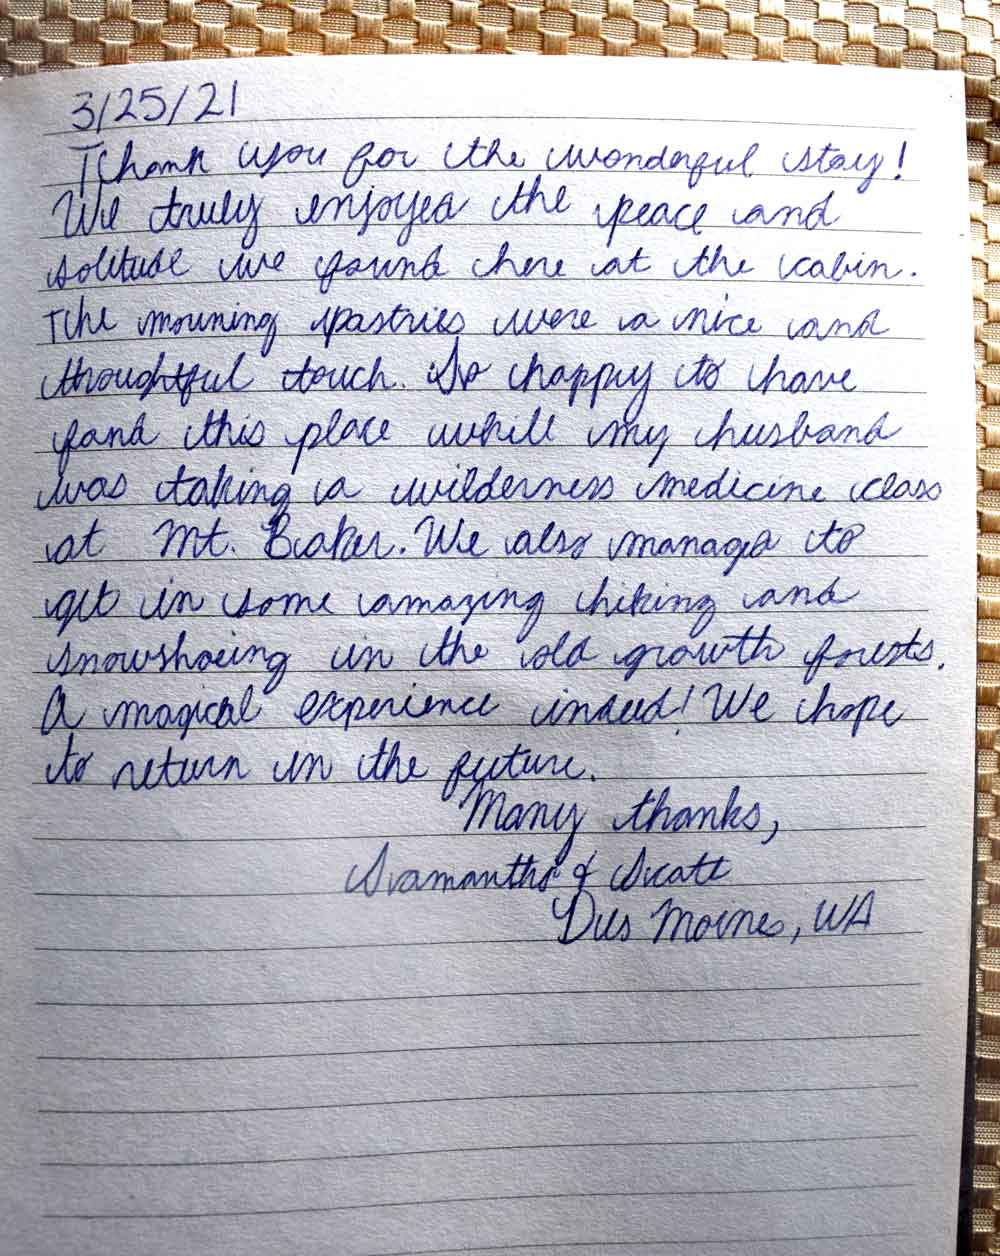 3/25/21
Thank you for the wonderful stay!
We truly enjoyed the peace and
solitude we found here at the cabin.
The mouning pastries were a nice and
thoughtful touch. So happy to have
fand this place while my husband
was taking a wilderness medicine class
at Mt. Baker. We also managed to
get in some amazing hiking and
snowshoeing in the old growth forests.
A magical experience indeed! We hope
to return in the future.
Many thanks,
Samantha & Scott
Des Moines, WA